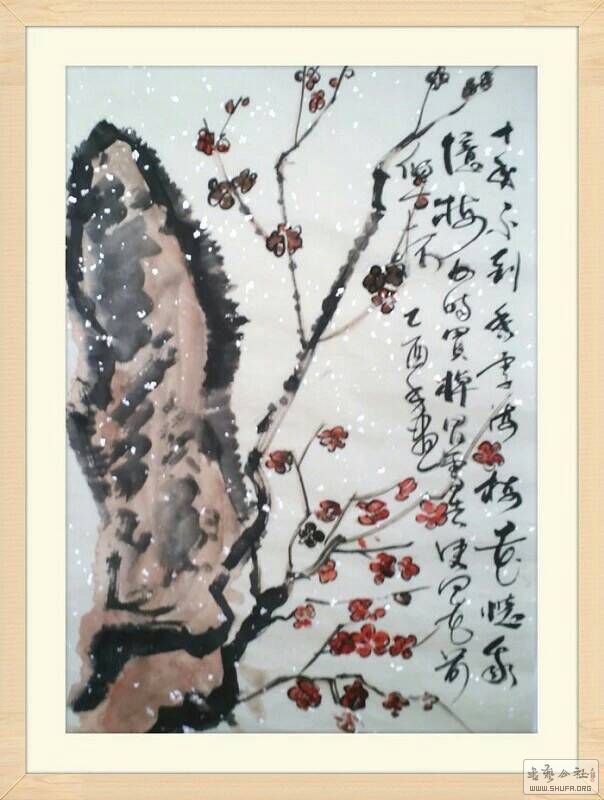 十年不到香雪海梅花憶我
憶梅何時買棹冒雪去便向花前
傾一杯
乙酉年画
书艺公社
WWW.SHUFA.ORG